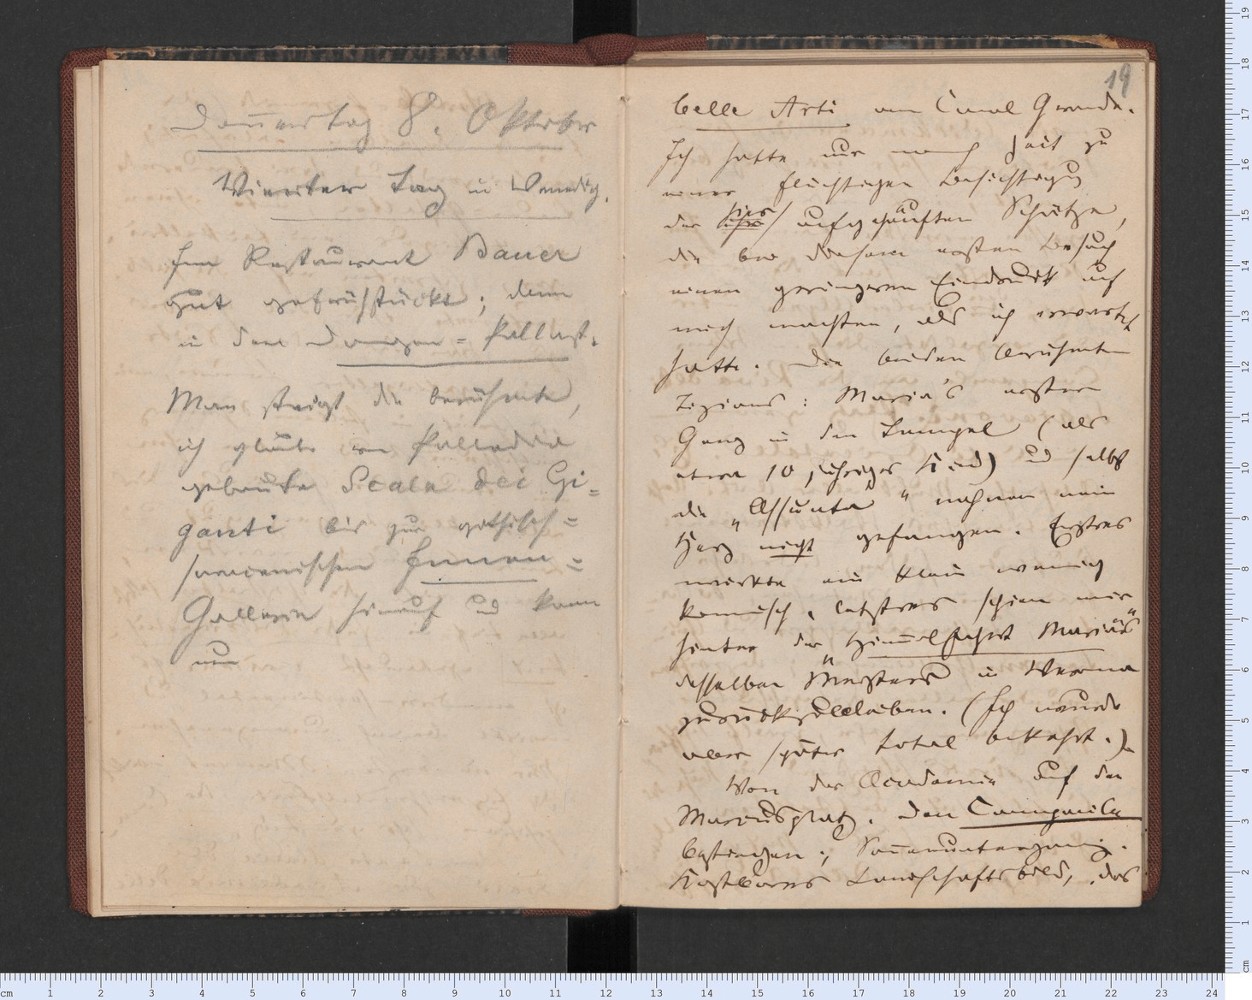 Donnerstag 8. Oktober
Vierter Tag in Venedig.
Im Restaurant Bauer
gut gefrühstückt; dann
in den Dogen-Pallast.
Man steigt die berühmte,
ich glaube von Palladio
gebaute Scala dei Gi-
ganti bis zur gothisch-
saracenischen Innen-
Gallerie hinauf und kann
nun
19
belle Arti am Canal Grande.
Ich hatte nur noch Zeit zu
einer flüchtigen Besichtigung
der hier aufgehäuften Schätze,
die bei diesem ersten Besuch
einen geringeren Eindruck auf
mich machten, als ich erwartet
hatte. Die beiden berühmten
Tizians: Maria's erster
Gang in den Tempel (als
etwa 10 jähriges Kind) und selbst
die „Assunta" nahmen mein
Herz nicht gefangen. Erstres
wirkte ein klein wenig
komisch, letztres schien mir
hinter der „Himmelfahrt Mariäs"
desselben Meisters in Verona
zurückzubleiben. (Ich wurde
aber später total bekehrt.)
Von der Academie auf den
Marcusplatz. Den Campanile
bestiegen; Sonnenuntergang.
Kostbares Landschaftsbild, das